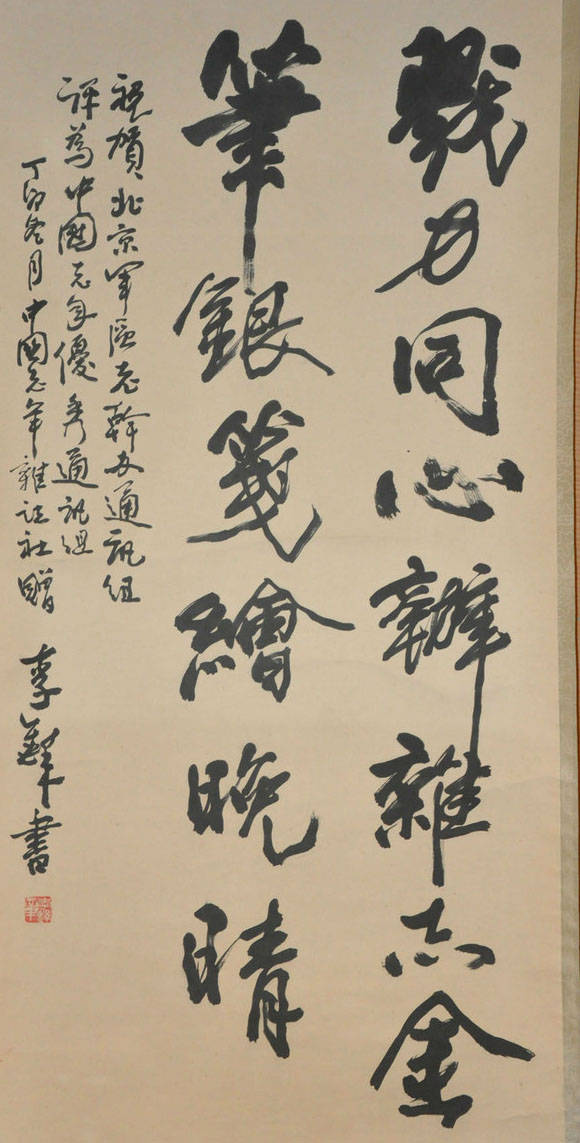 戮力同心辦雜志金
筆銀箋繪晚晴
祝賀北京軍區老幹办通訊組
評為中國老年優秀通訊組
丁卯冬月中國老年雜誌社贈 李鐸書